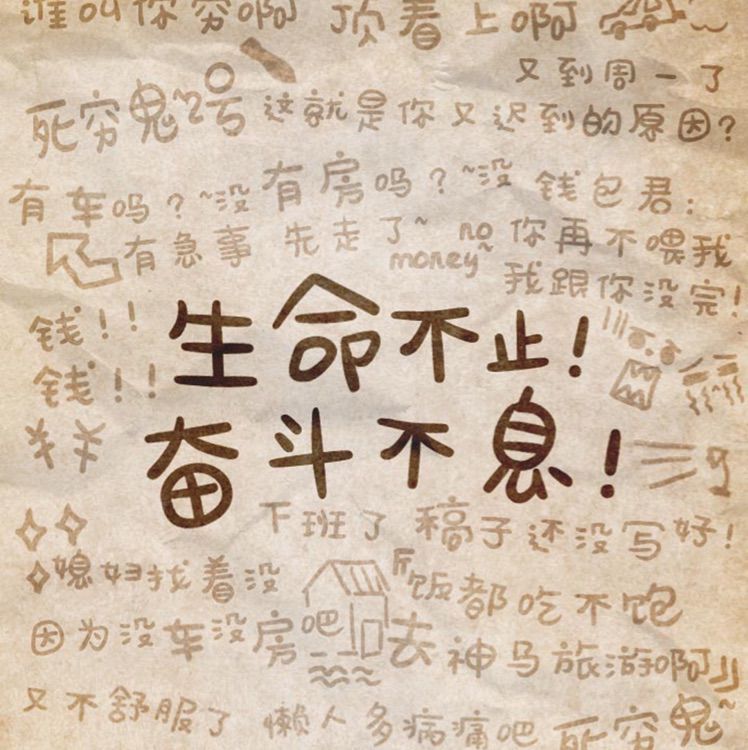 谁叫你穷啊 顶着上啊
又到周一了
死穷鬼~2号 这就是你又迟到的原因?
有车吗?~没有房吗?~没 钱包君:
有急事 先走了~ no money~ 你再不喂我
我跟你没完!
钱!!
生命不止!
钱!!
¥¥
奋斗不息!
下班了 稿子还没写好!
媳妇找着没 饭都吃不饱
因为没车没房吧 去神马旅游啊
又不舒服了 懒人多病痛吧 死穷鬼~